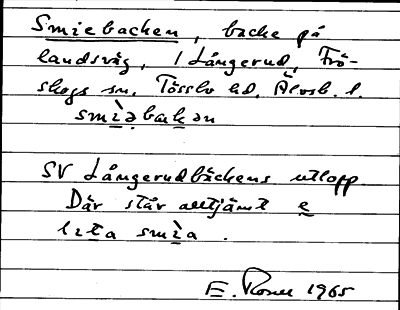 Smiebacken, backe på
landsväg, i Långerud, Frö-
skogs sn. Tössbo hd, Älvsb. l.
smìəbakən
SV Långerudbäckens utlopp.
Där står alltjämt e
lita smìa.
E. 1965